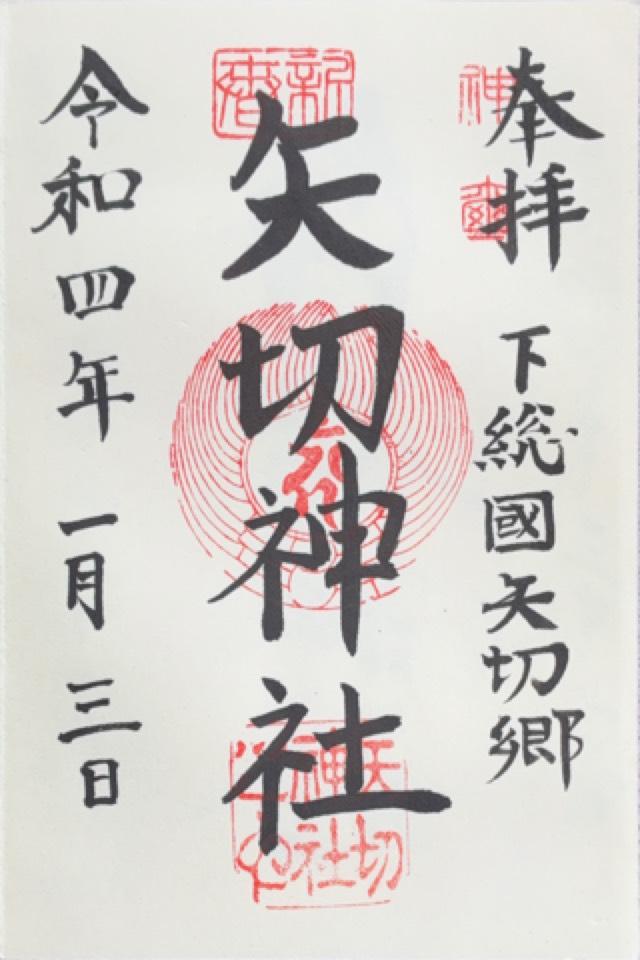 奉拝
下総國矢切郷
神璽
矢切神社
新暦
矢切神社
令和四年
一月三日